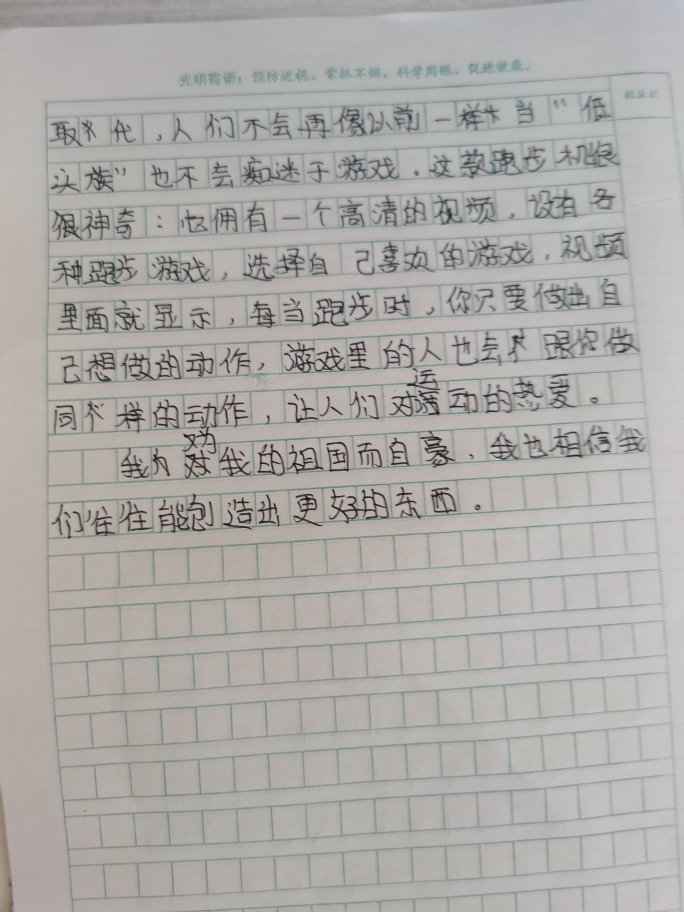 光明寄语：预防近视、常抓不懈、科学用眼、促进健康。
取代，人们不会再像以前一样当“低
头族”也不会痴迷于游戏。这款跑步机很
很神奇：它拥有一个高清的视频，设有各
种跑步游戏，选择自己喜欢的游戏，视频
里面就显示，每当跑步时，你只要做出自
己想做的动作，游戏里的人也会跟你做
同样的动作，让人们对运动的热爱。
我为我的祖国而自豪，我也相信我
们往往能创造出更好的东西。